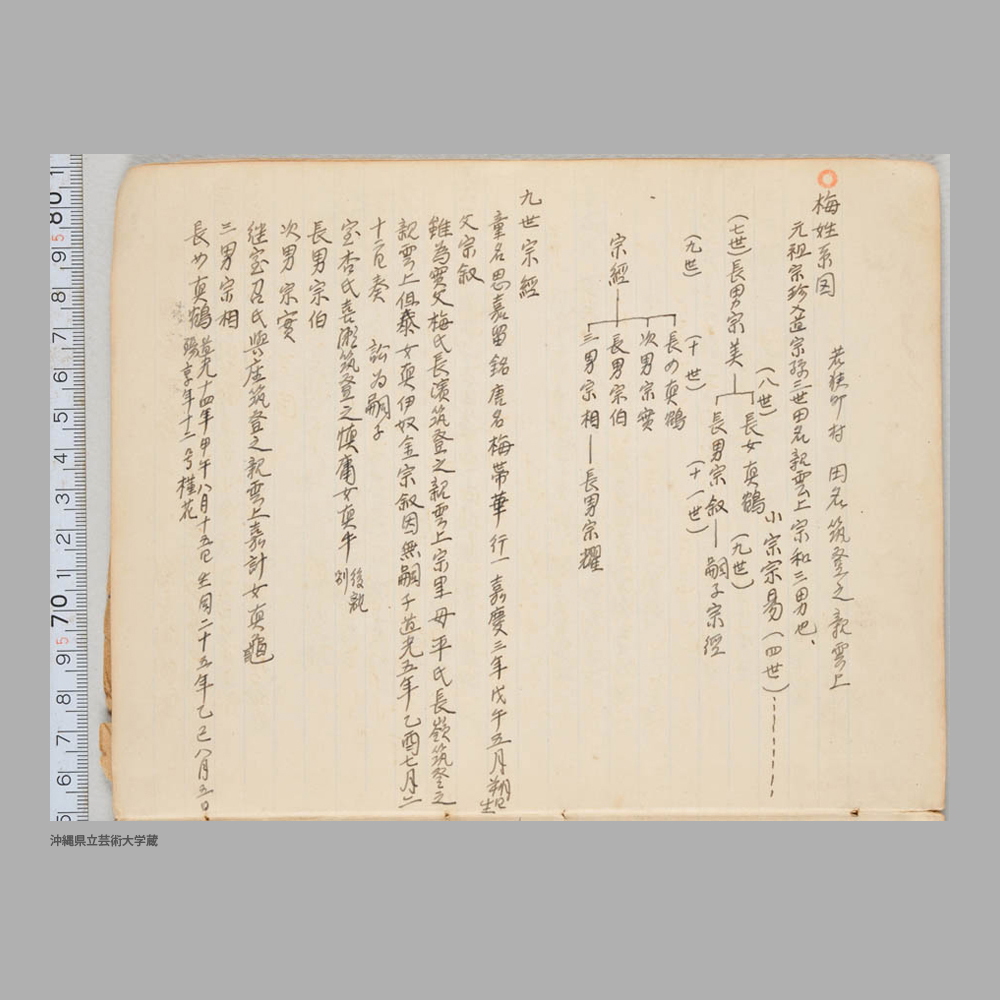 梅姓系図
若狭町村　田名筑登之親雲上
元祖宗珍入道宗孫三世田名親雲上宗和三男也、
小宗宗易（四世）
（七世）長男宗美
（八世）
長女真鶴
長男宗叙
（九世）
嗣子宗經
（九世）
（十世）
（十一世）
宗經
長女真鶴
次男宗實
長男宗伯
三男宗相
長男宗耀
九世宗經
童名思嘉留銘唐名梅帯華行一嘉慶三年戊午五月朔日生
父宗叙
雖為實父梅氏長濱筑登之親雲上宗里母平氏長嶺筑登之
親雲上但泰女真伊奴金宗叙因無嗣子道光五年乙酉七月二
十六日奏　訟為嗣子
室杏氏喜瀬筑登之慎庸女真牛
後離別
長男宗伯
次男宗實
継室召氏與座筑登之親雲上嘉計女真亀
三男宗相
長女真鶴
道光十四年甲午八月十五日生同二十五年乙巳八月五日
殤享年十二号桂花
沖縄県立芸術大学蔵